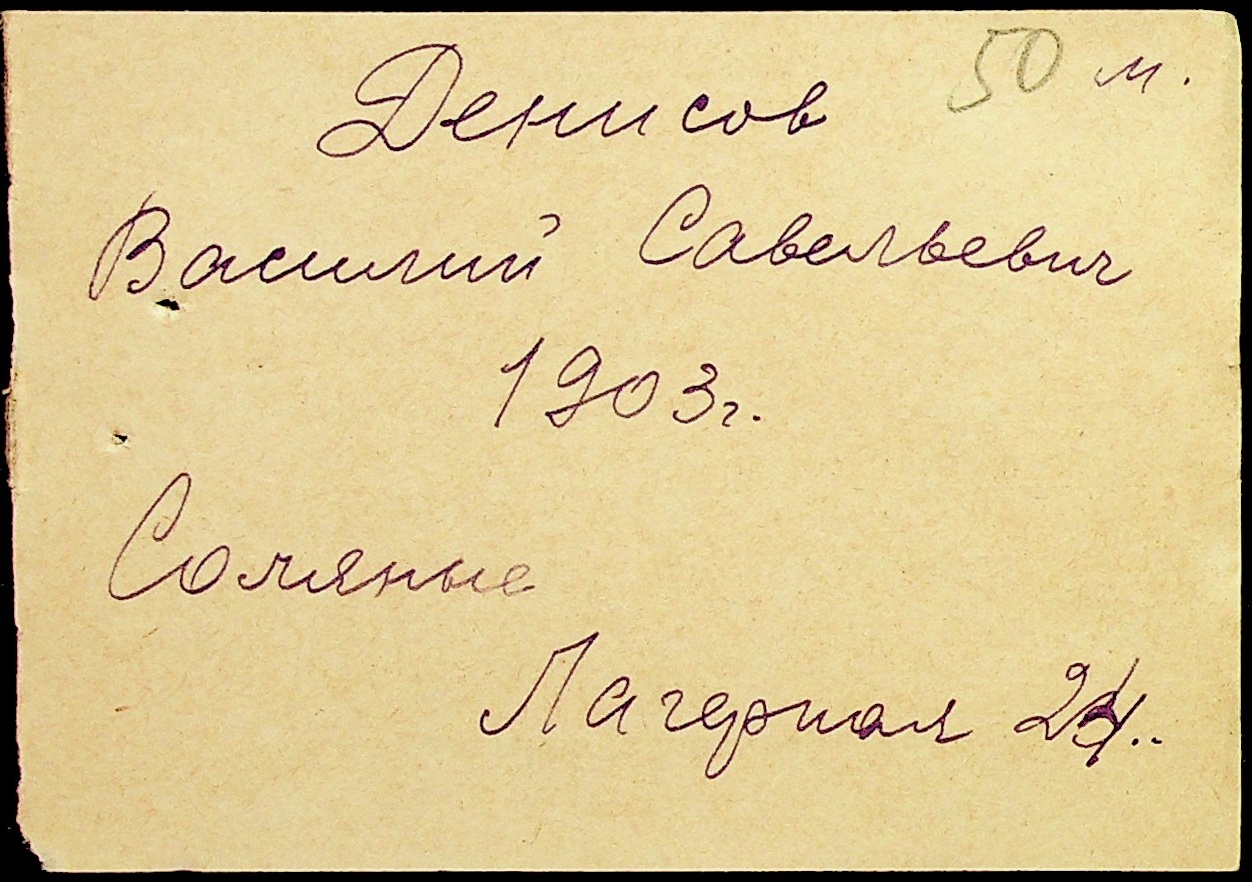 50 м.
Денисов
Василий Савельевич
1903г.
Соляные
Лагерная 24..